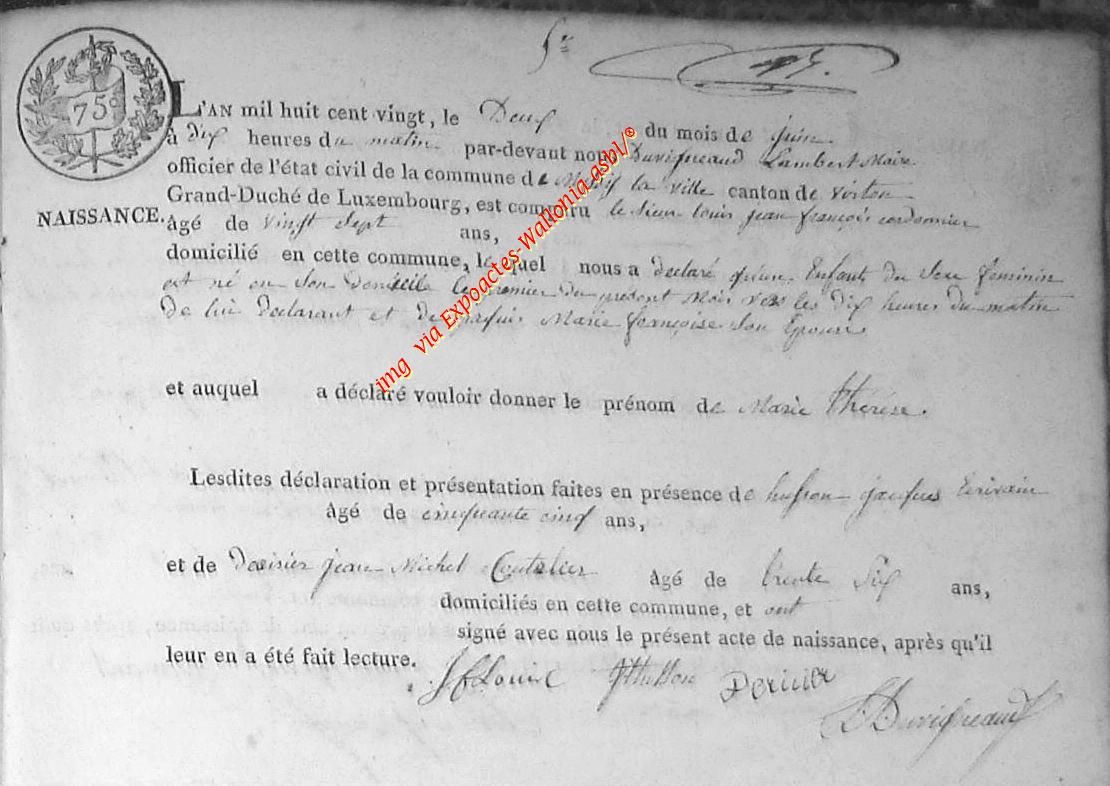 75
L'AN mil huit cent vingt, le Deux du mois de juin
à dix heures du matin par-devant nous Duvigneaud Lambert Maire
officier de l'état civil de la commune de la ville canton de virton
Grand-Duché de Luxembourg, est comparu le sieur louis jean françois cordonnier
NAISSANCE.
âgé de vingt sept ans,
domicilié en cette commune, lequel nous a declaré qu'un Enfant du sexe feminin
est né en son domicile le premier du présent mois vers les dix heures du matin
de lui declarant et de Marie françoise son Epouse
et auquel a déclaré vouloir donner le prénom de Marie thérèse.
Lesdites déclaration et présentation faites en présence de husson jacques Ecrivain
âgé de cinquante cinq ans,
et de jean Michel âgé de trente six ans,
domiciliés en cette commune, et ont
signé avec nous le présent acte de naissance, après qu'il
leur en a été fait lecture.
JfLouis JHusson
Duvigneaud
img via Expoactes-Wallonia.asbl/®